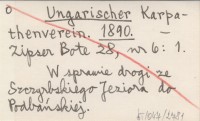 o Ungarischer Karpa-
thenverein. 1890. —
Zipser Bote 28, nr 6: 1.
W sprawie drogi ze
Szczyrbskiego Jeziora do
Podbańskiej.